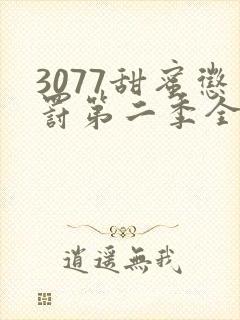 3077甜蜜懲
罰第二季全
逍遥無我